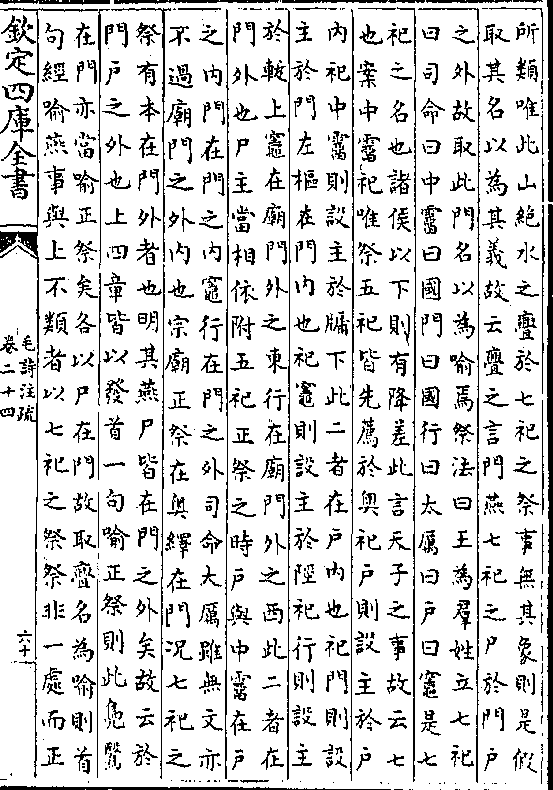 所類唯此山絶水之亹於七祀之祭事無其象則是假
取其名以為其義故云亹之言門燕七祀之尸於門戶
之外故取此門名以為喻焉祭法曰王為羣姓立七祀
曰司命曰中霤曰國門曰國行曰太厲曰戶曰竈是七
祀之名也諸侯以下則有降差此言天子之事故云七
也案中霤祀唯祭五祀皆先薦於奥祀戶則設主於戶
内祀中霤則設主於牖下此二者在戶内也祀門則設
主於門左樞在門内也祀竈則設主於陘祀行則設主
於軷上竈在廟門外之東行在廟門外之西此二者在
門外也尸主當相依附五祀正祭之時戶與中霤在戶
之内門在門之内竈行在門之外司命大厲雖無文亦
不過廟門之外内也宗廟正祭在奥繹在門況七祀之
祭有本在門外者也明其燕尸皆在門之外矣故云於
門戶之外也上四章皆以發首一句喻正祭則此鳬鷖
在門亦當喻正祭矣各以尸在門故取亹名為喻則首
句經喻燕事與上不類者以七祀之祭祭非一處而正
欽定四庫全書
毛詩注疏
卷二十四
六十一